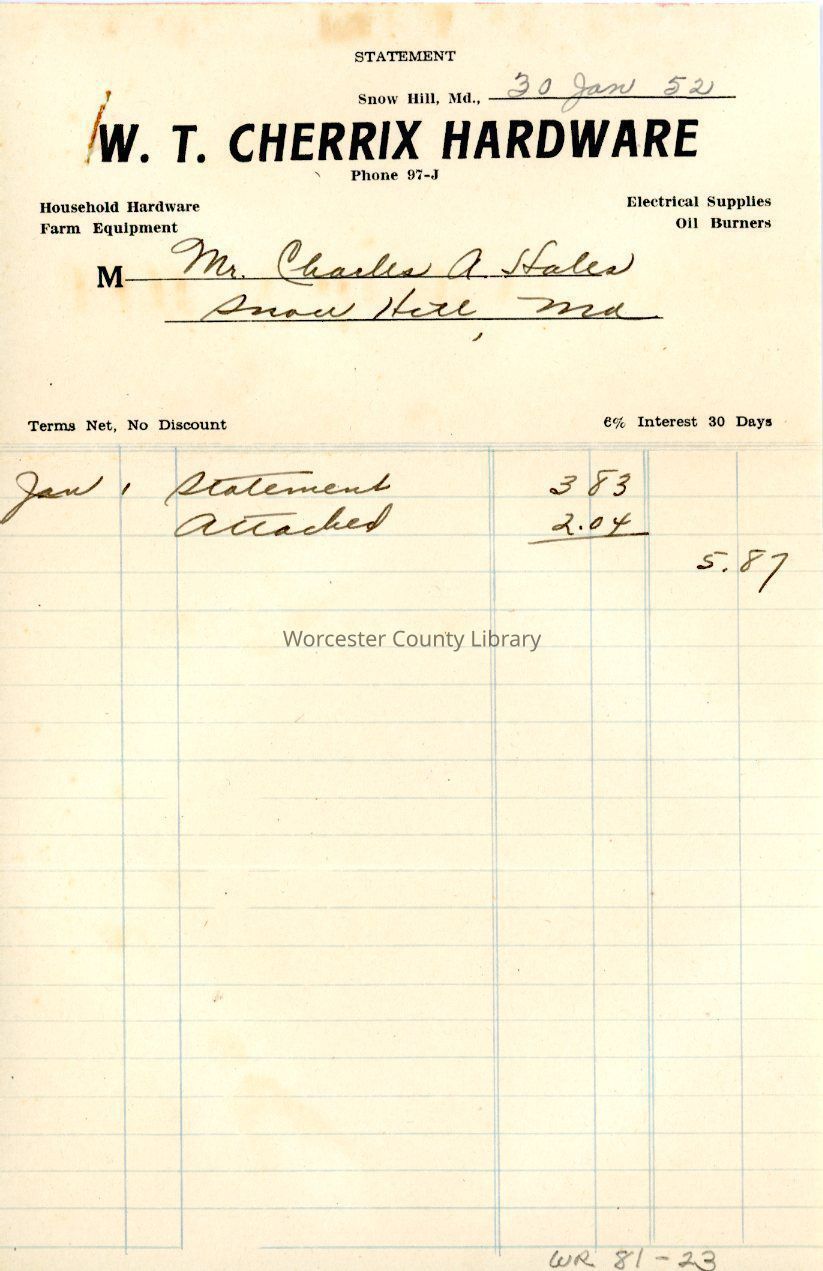 STATEMENT
Snow Hill, Md., 30 Jan 52
W. T. CHERRIX HARDWARE
Phone 97-J
Household Hardware Electrical Supplies
Farm Equipment Oil Burners
M Mr. Charles A Hales
Snow Hill, Md
Terms Net, No Discount 6% Interest 30 Days
Jan 1 Statement 3 83
Attached 2.04
5.87
Worcester County Library
WR 81-23